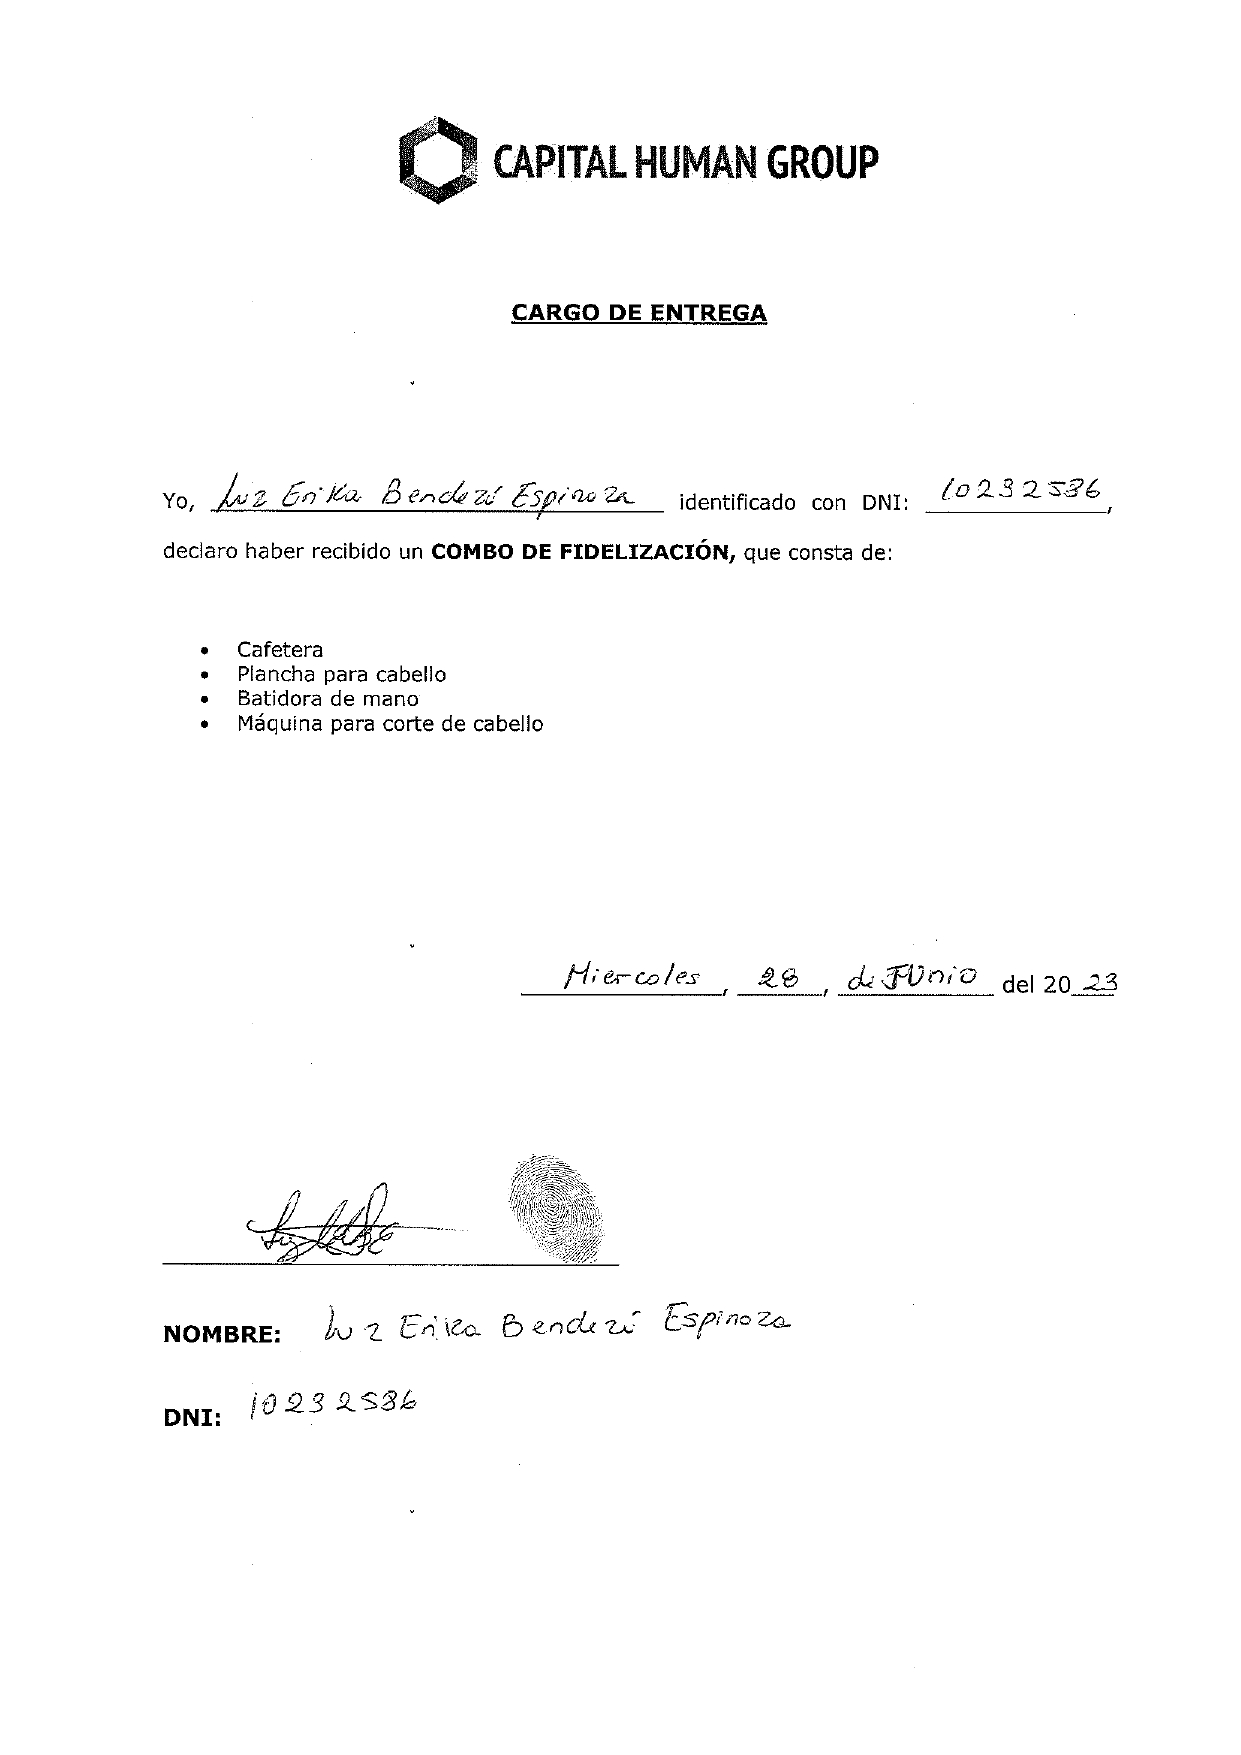 CAPITAL HUMAN GROUP
CARGO DE ENTREGA
Yo, Luz Erika Bendezú Espinoza identificado con DNI: 10232536,
declaro haber recibido un COMBO DE FIDELIZACIÓN, que consta de:
• Cafetera
• Plancha para cabello
• Batidora de mano
• Máquina para corte de cabello
Miercoles, 28, de JUnio del 2023
NOMBRE: Luz Erika Bendezú Espinoza
DNI: 10232536